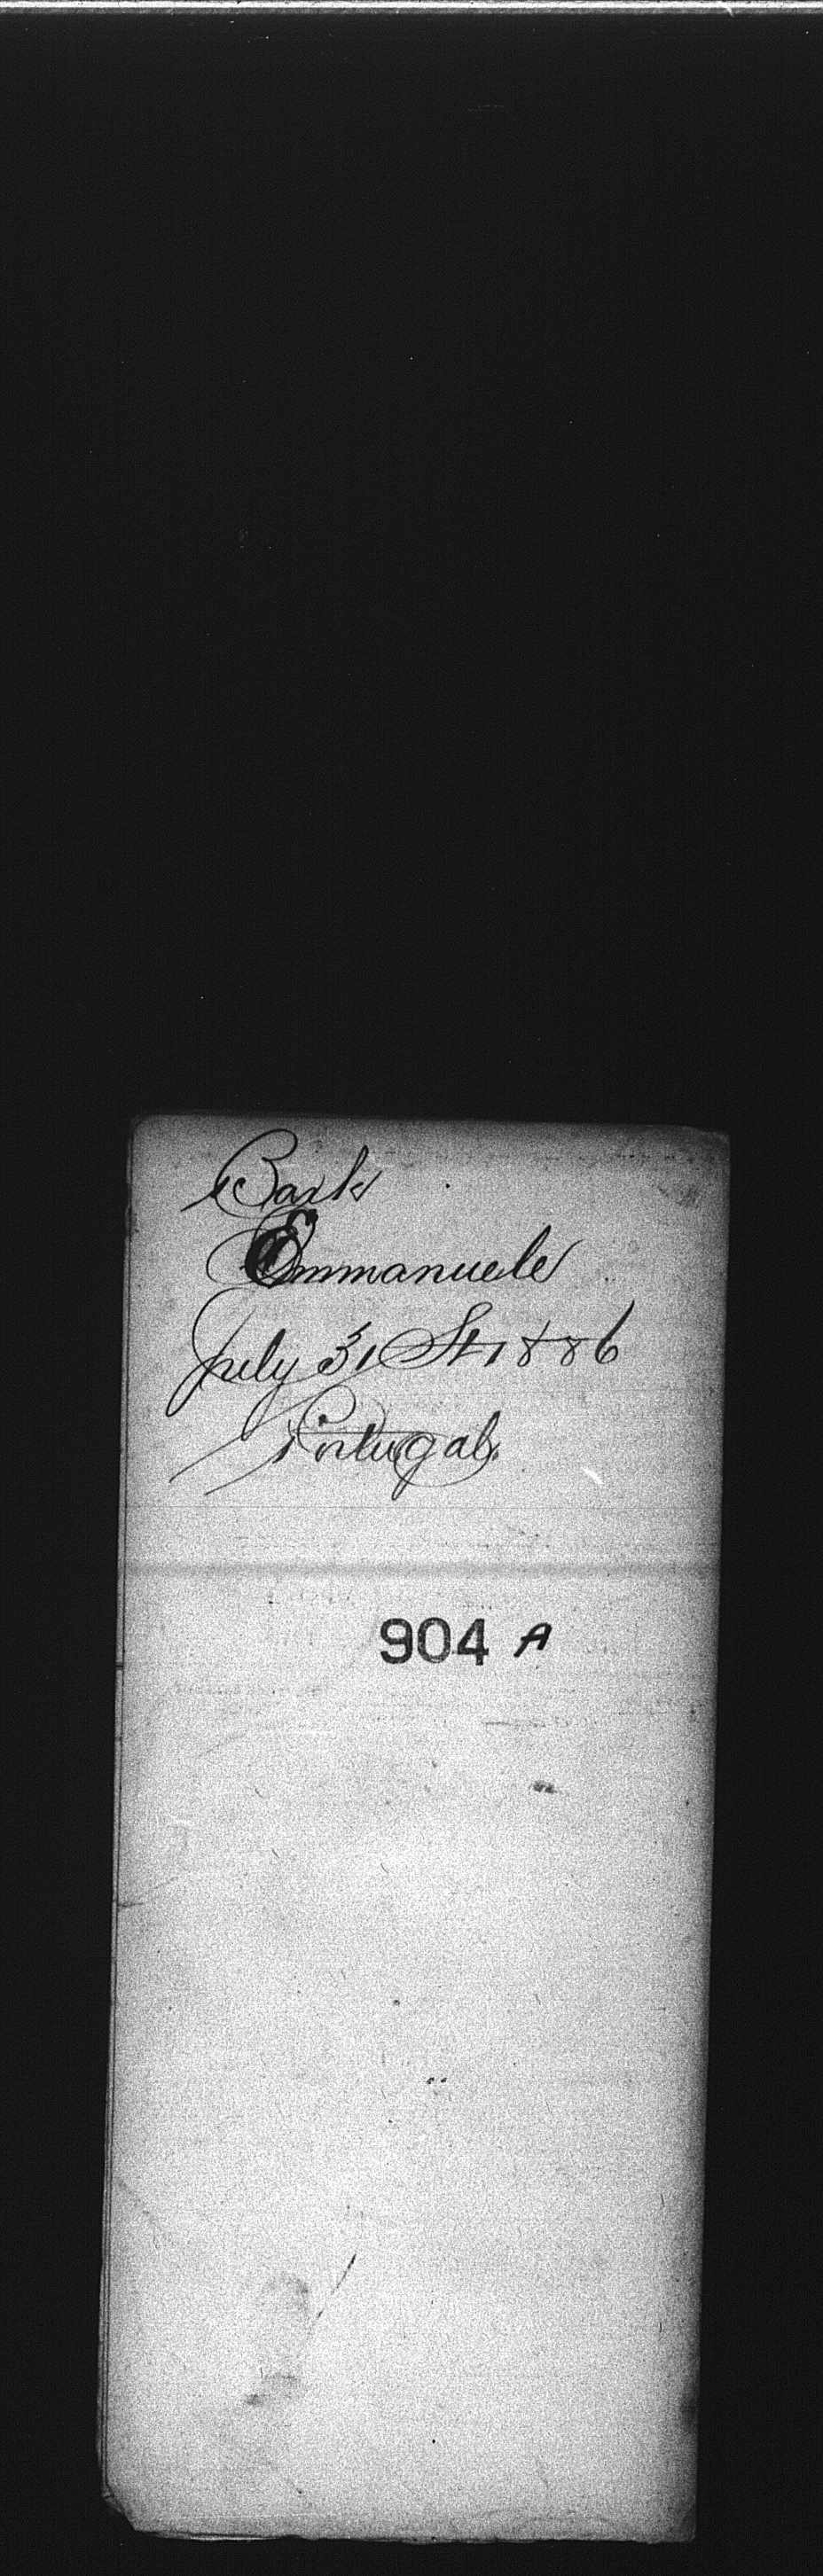 Bark
Emmanuele
July 31 St, 1886
Portugal.
904 A